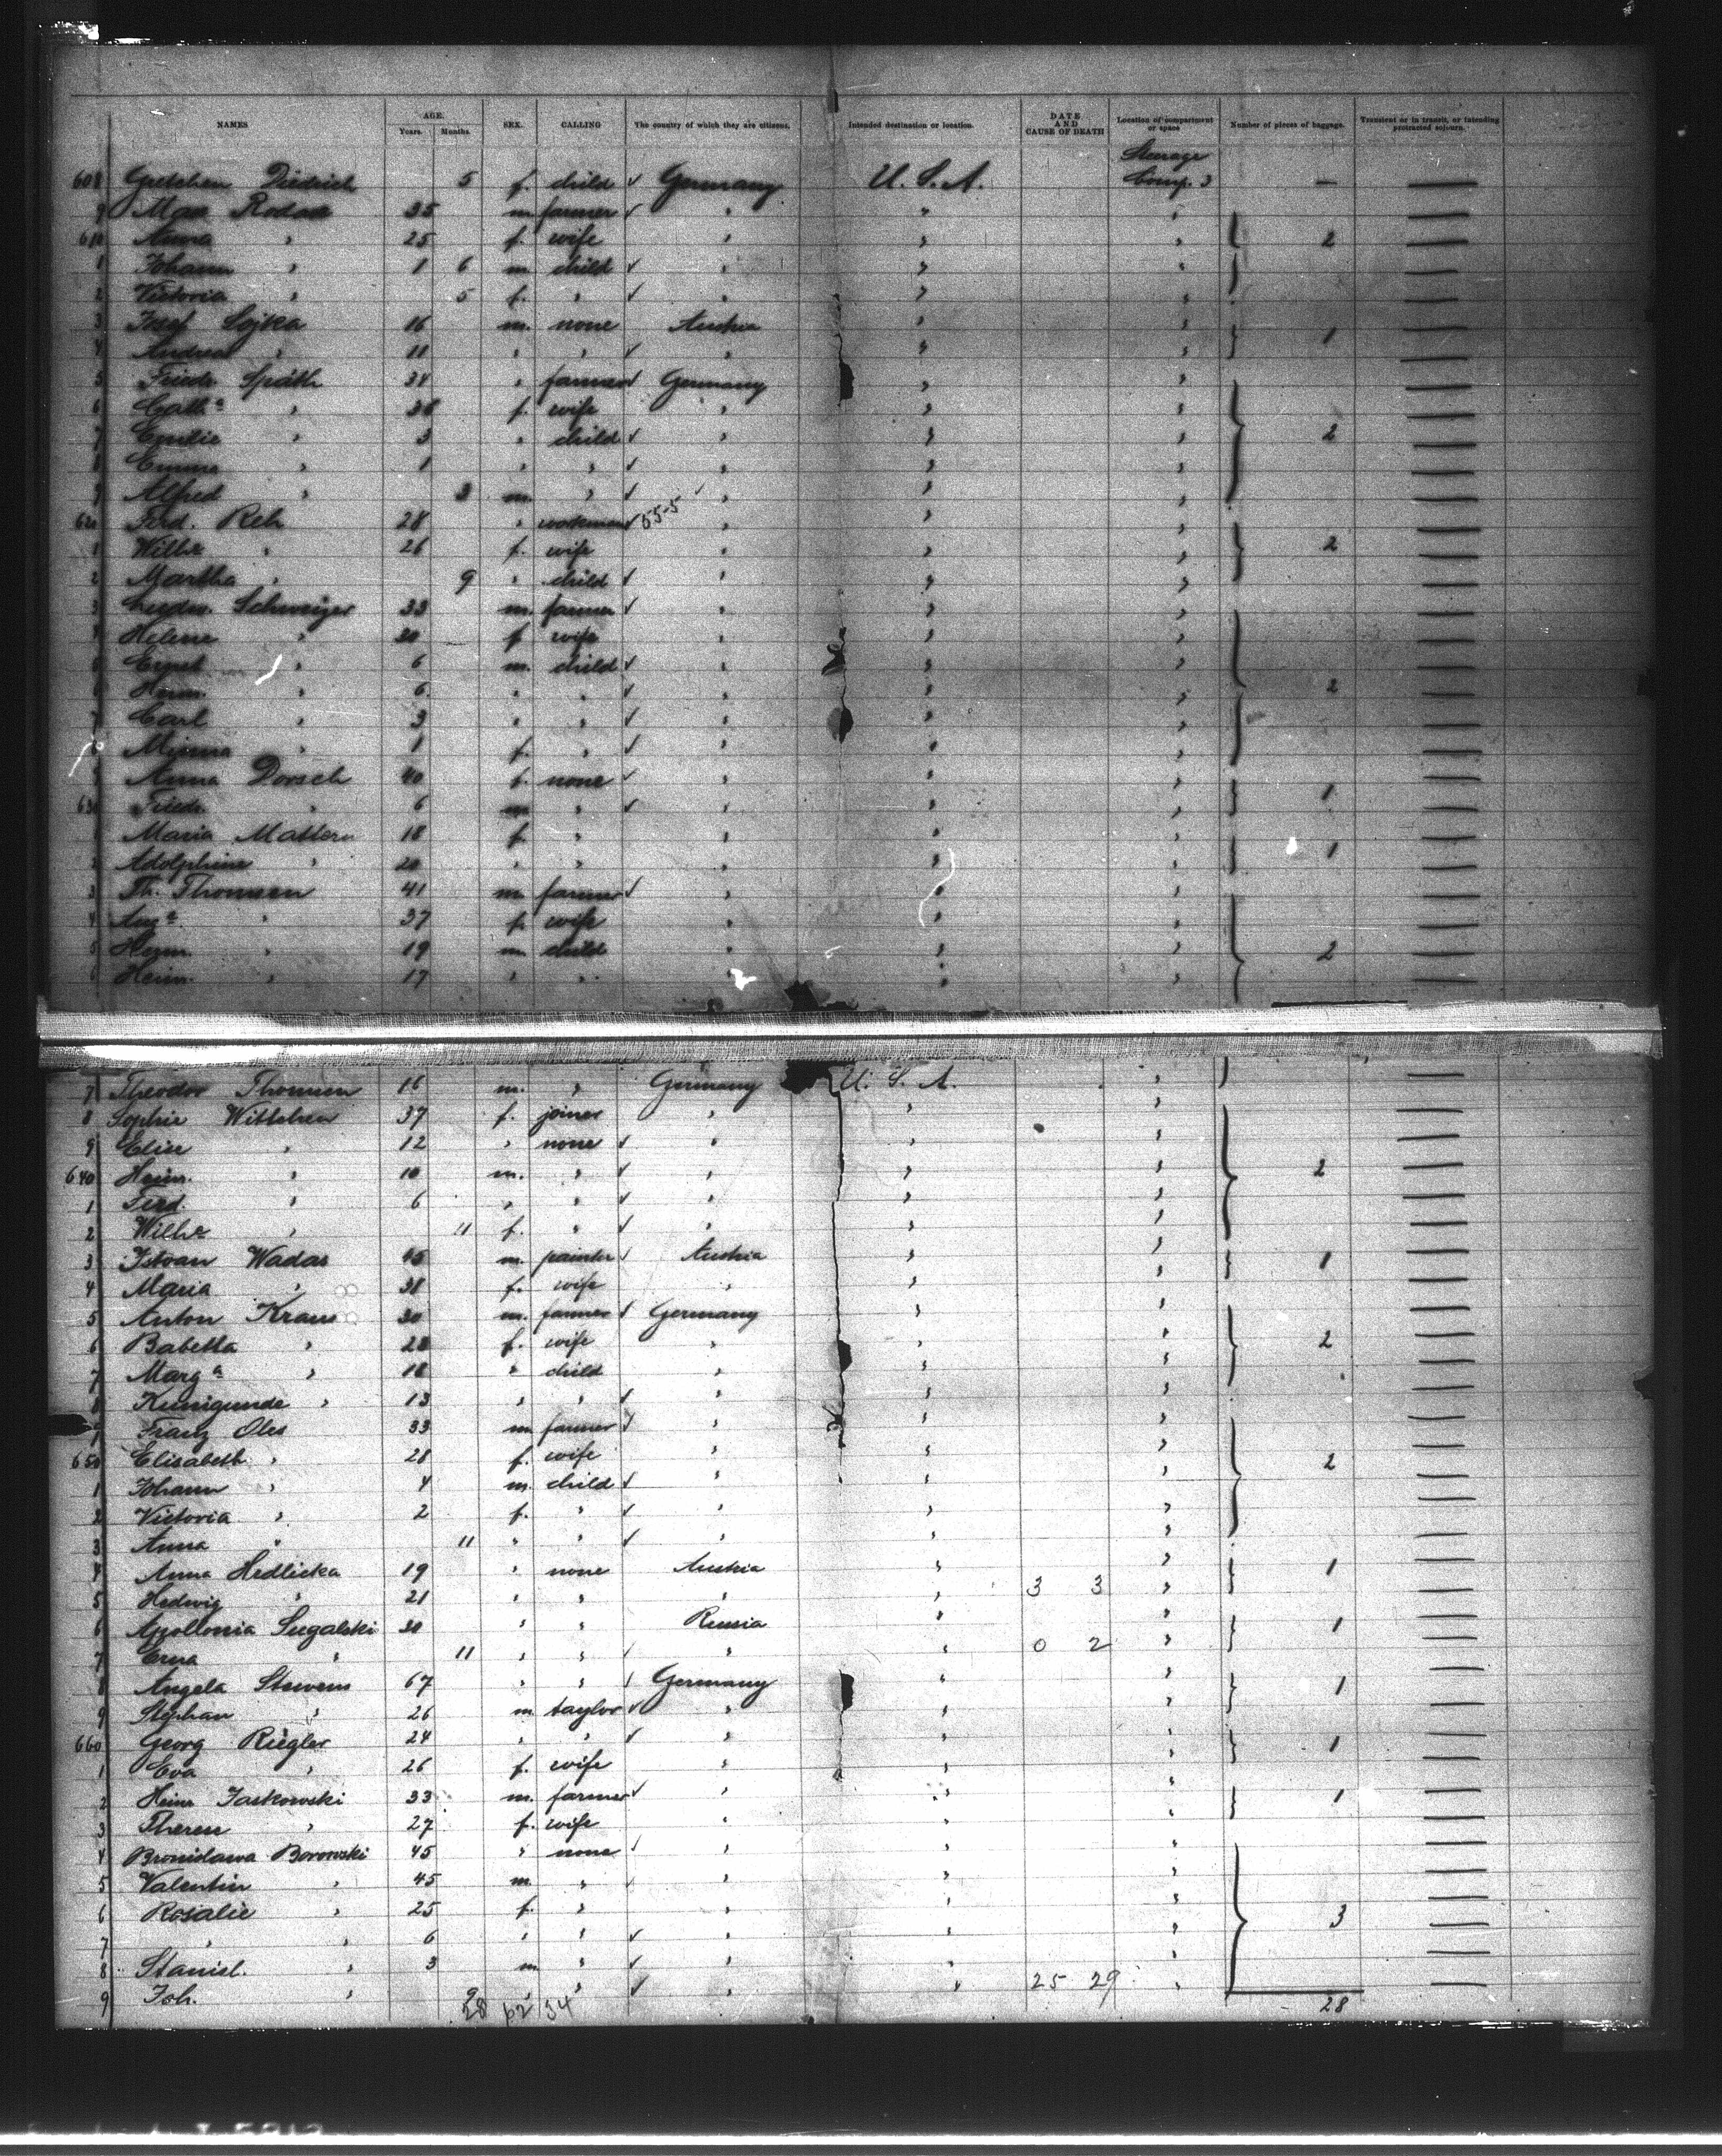 NAMES AGE. Years. Months. SEX. CALLING The country of which they are citizens. Intended destination or location. DATE AND CAUSE OF DEATH Location of compartment or space Number of pieces of baggage. Transient or in transit, or intending protracted sojourn.
Steerage
608 Gretchen Diedrich 5 f. child ✓ Germany U. S. A. Comp. 3 —
9 Max 35 m. farmer ✓ " " "
610 Anna " 25 f. wife " " " 2
1 Johann " 1 6 m. child ✓ " " "
2 Victoria " 5 f. " ✓ " " "
3 Josef Sojka 16 m. none Austria " " 1
4 Andreas " 11 " " ✓ " " "
5 Friedr. Späth 34 " farmer ✓ Germany " "
6 Cath.a " f. wife " " "
7 Emilie " 3 " child ✓ " " " 2
8 Emma " 1 " " ✓ " " "
9 Alfred " 3 m. " ✓ " " "
620 Ferd. Reh 28 " workman ✓ 55-5 " " "
1 Wilhe " 26 f. wife " " " 2
2 Martha " 9 " child ✓ " " "
3 Ludw. Schweizer 33 m. farmer ✓ " " "
4 Helene " 30 f. wife " " "
5 Ernst " 6 m. child ✓ " " "
6 Herm. " 6 " " ✓ " " " 2
7 Carl " 3 " " ✓ " " "
8 Minna " 1 f. " ✓ " " "
9 Anna Dorsch 40 f. none ✓ " " "
630 Friedr. " 6 m. " ✓ " " " 1
1 Maria Mattern 18 f. " " " "
2 Adolphine " 20 " " " " " 1
3 Th. Thomsen 41 m. farmer ✓ " " "
4 Aug.a " 37 f. wife " " "
5 Herm. " 19 m. child " " " 2
6 Heinr. " 17 " " " " "
7 Theodor Thomsen 16 m. " Germany U. S. A. "
8 Sophie Wittchen 37 f. joiner " " "
9 Elise " 12 " none ✓ " " "
640 Heinr. " 10 m. " ✓ " " " 2
1 Ferd. " 6 " " ✓ " " "
2 Wilhe " 11 f. " ✓ " " "
3 Istvan Wadas 45 m. painter ✓ Austria " " 1
4 Maria " 38 f. wife " " "
5 Anton Kraus 30 m. farmer ✓ Germany " "
6 Babetta " 28 f. wife " " " 2
7 Marg.a " 18 " child " " "
8 Kunigunde " 13 " " ✓ " " "
9 Franz Oles 33 m. farmer ✓ " " "
650 Elisabeth " 28 f. wife " " " 2
1 Johann " 4 m. child ✓ " " "
2 Victoria " 2 f. " ✓ " " "
3 Anna " 11 " " ✓ " " "
4 Anna Hedlicka 19 " none Austria " " 1
5 Hedwig " 21 " " " " 3 3 "
6 Apollonia Sugalski 30 " " Russia " " 1
7 Erna " 11 " " ✓ " " 0 2 "
8 Angela Stevens 67 " " ✓ Germany " " 1
9 Stephan " 26 m. taylor ✓ " " "
660 Georg Riegler 24 " " ✓ " " " 1
1 Eva " 26 f. wife " " "
2 Heinr. Jaskowski 33 m. farmer ✓ " " " 1
3 Theres " 27 f. wife " " "
4 Bronislawa Borowski 45 " none ✓ " " "
5 Valentin " 45 m. " ✓ " " "
6 Rosalie " 25 f. " " " " 3
7 " " 6 " " ✓ " " "
8 Stanisl. " 3 m. " ✓ " " "
9 Joh. " 9 " " ✓ " " 25 29 "
28 62 34 28